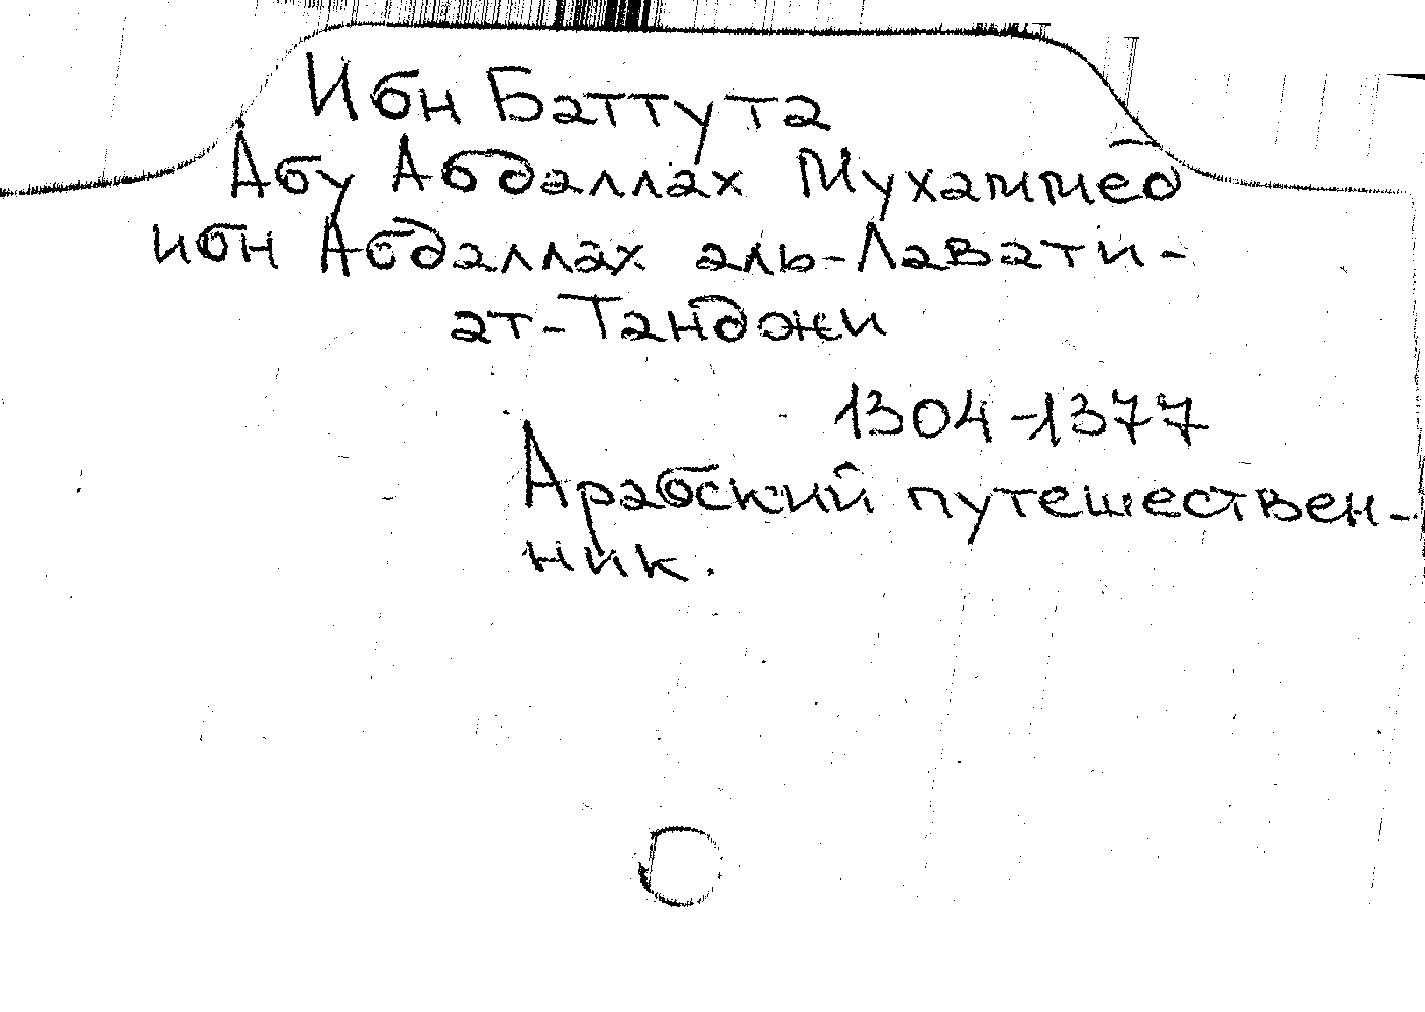 Ибн Баттута
Абу Абдаллах Мухаммед
ибн Абдаллах аль-Лавати-
ат-Танджи
1304-1377
Арабский путешествен-
ник.